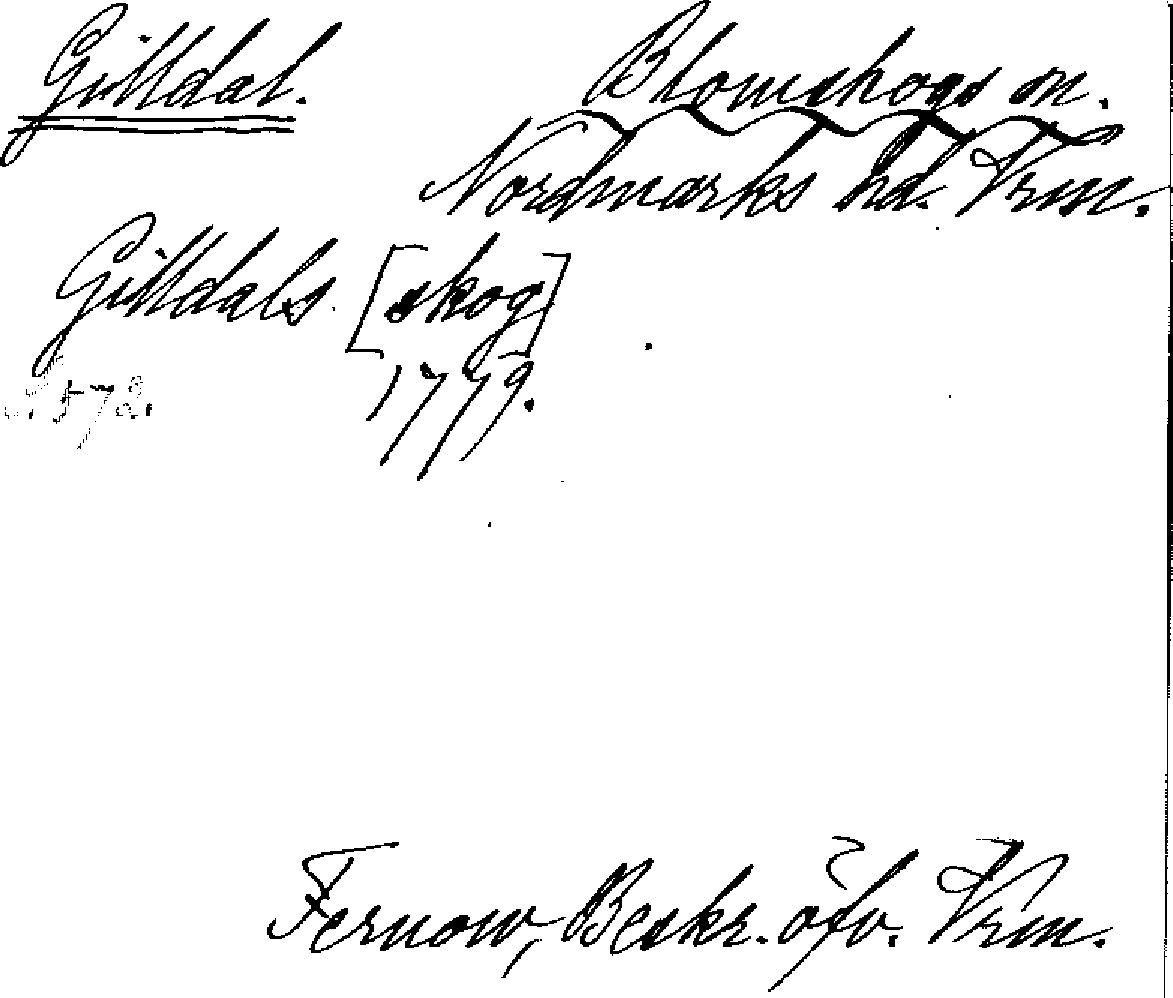 Gilldal. Blomskogs sn.
Nordmarks hd. Vrm.
Gilldals [skog]
S. 572. 1779.
Fernow, Beskr. öfv. Vrm.